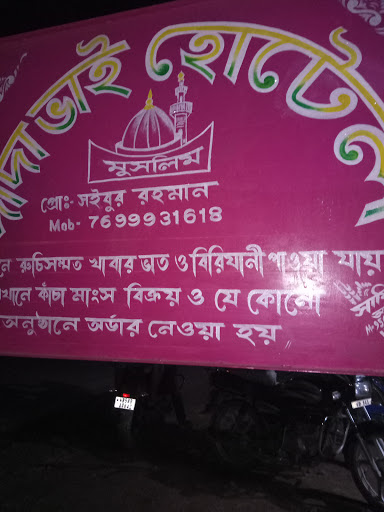 দাদা ভাই হোটেল
মুসলিম
প্রোঃ- সইবুর রহমান
Mob- 7699931618
রুচিসম্মত খাবার ভাত ও বিরিযানী পাওয়া যায়
এখানে কাঁচা মাংস বিক্রয় ও যে কোনো
অনুষ্ঠানে অর্ডার নেওয়া হয়